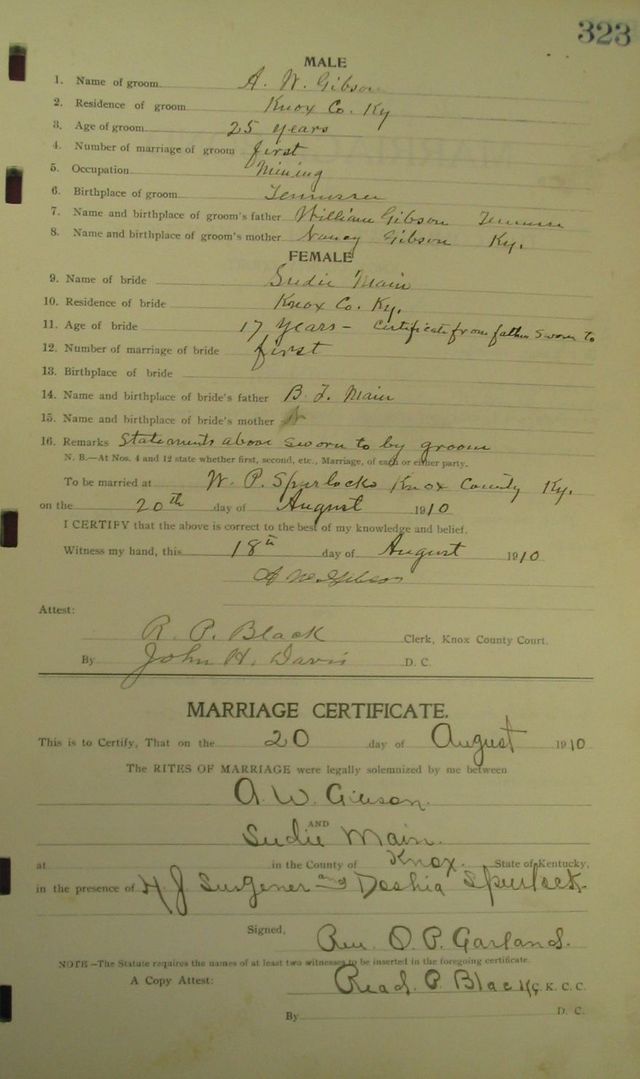 323
MALE
1. Name of groom A. W. Gibson
2. Residence of groom Knox Co. Ky
3. Age of groom 25 years
4. Number of marriage of groom first
5. Occupation Mining
6. Birthplace of groom Tennessee
7. Name and birthplace of groom's father William Gibson Tennessee
8. Name and birthplace of groom's mother Nancy Gibson Ky.
FEMALE
9. Name of bride Sudie Main
10. Residence of bride Knox Co. Ky.
11. Age of bride 17 years - Certificate from father sworn to
12. Number of marriage of bride first
13. Birthplace of bride
14. Name and birthplace of bride's father B. F. Main
15. Name and birthplace of bride's mother
16. Remarks Statements above sworn to by groom
N. B.—At Nos. 4 and 12 state whether first, second, etc., Marriage, of each or either party.
To be married at W. P. Spurlocks Knox County Ky.
on the 20th day of August 1910
I CERTIFY that the above is correct to the best of my knowledge and belief.
Witness my hand, this 18th day of August 1910
A W Gibson
Attest:
R. P. Black Clerk, Knox County Court.
By John H. Davis D. C.
MARRIAGE CERTIFICATE.
This is to Certify, That on the 20 day of August 1910
The RITES OF MARRIAGE were legally solemnized by me between
A. W. Gibson.
AND
Sudie Main.
at in the County of Knox. State of Kentucky,
in the presence of H J Surgener and Doshia Spurlock.
Signed, Rev. O. P. Garland.
NOTE—The Statute requires the names of at least two witnesses to be inserted in the foregoing certificate.
A Copy Attest: Read. P. Black, C. K. C. C.
By D. C.